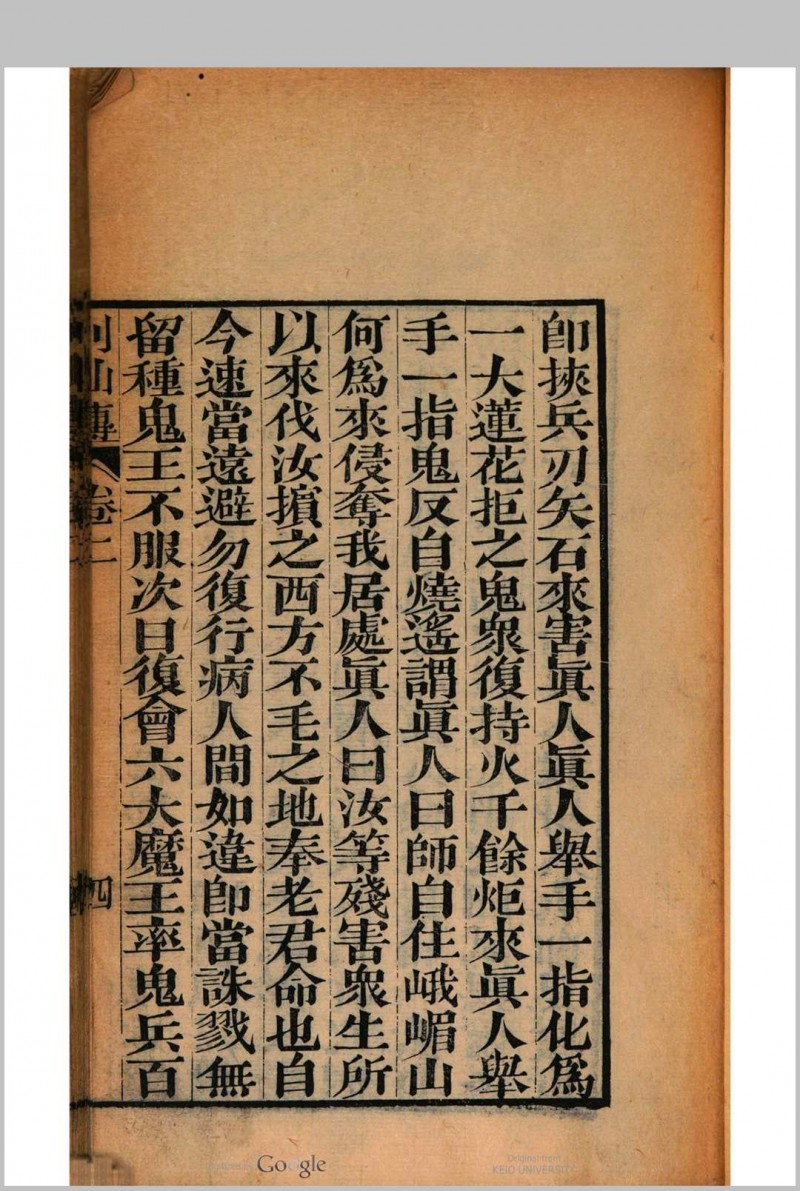 卽挾兵刃矢石來害眞人眞人舉手一指化爲
一大蓮花拒之鬼衆復持火千餘炬來眞人舉
手一指鬼反自燒遙謂眞人曰師自住峨嵋山
何爲來侵奪我居處眞人曰汝等殘害衆生所
以來伐汝擯之西方不毛之地奉老君命也自
今速當遠避勿復行病人間如違卽當誅戮無
留種鬼王不服次日復會六大魔王率鬼兵百
列仙傳 卷二 四
Google
KEIO UNIVERSITY